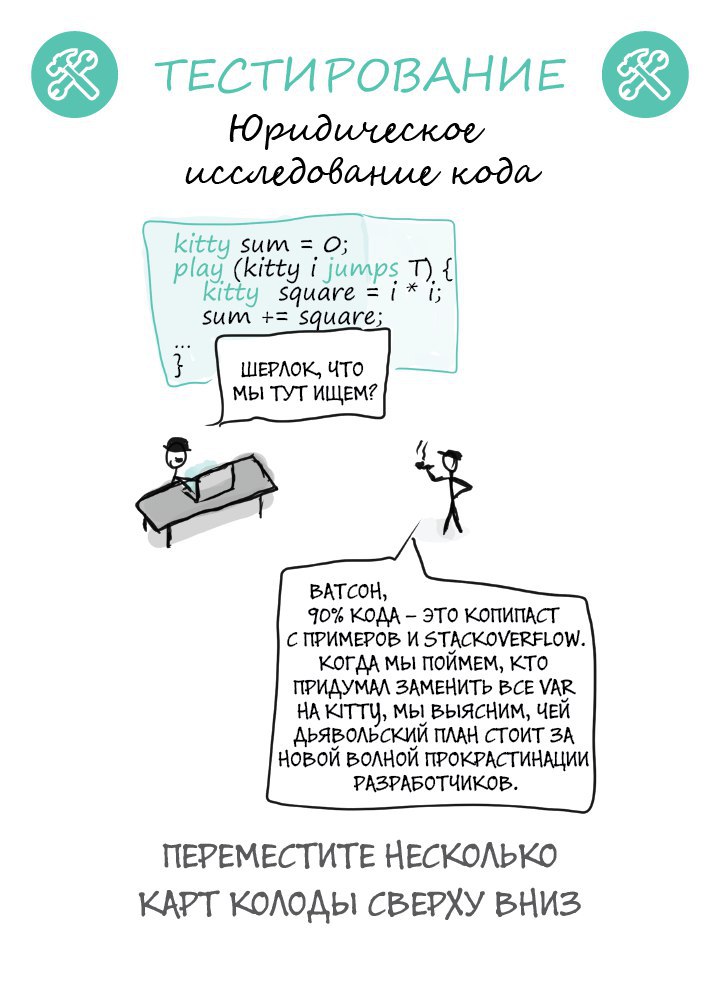 ТЕСТИРОВАНИЕ
Юридическое
исследование кода
kitty sum = 0;
play (kitty i jumps T) {
kitty square = i * i;
sum += square;
...
}
ШЕРЛОК, ЧТО
МЫ ТУТ ИЩЕМ?
ВАТСОН,
90% КОДА – ЭТО КОПИПАСТ
С ПРИМЕРОВ И STACKOVERFLOW.
КОГДА МЫ ПОЙМЕМ, КТО
ПРИДУМАЛ ЗАМЕНИТЬ ВСЕ VAR
НА KITTY, МЫ ВЫЯСНИМ, ЧЕЙ
ДЬЯВОЛЬСКИЙ ПЛАН СТОИТ ЗА
НОВОЙ ВОЛНОЙ ПРОКРАСТИНАЦИИ
РАЗРАБОТЧИКОВ.
ПЕРЕМЕСТИТЕ НЕСКОЛЬКО
КАРТ КОЛОДЫ СВЕРХУ ВНИЗ